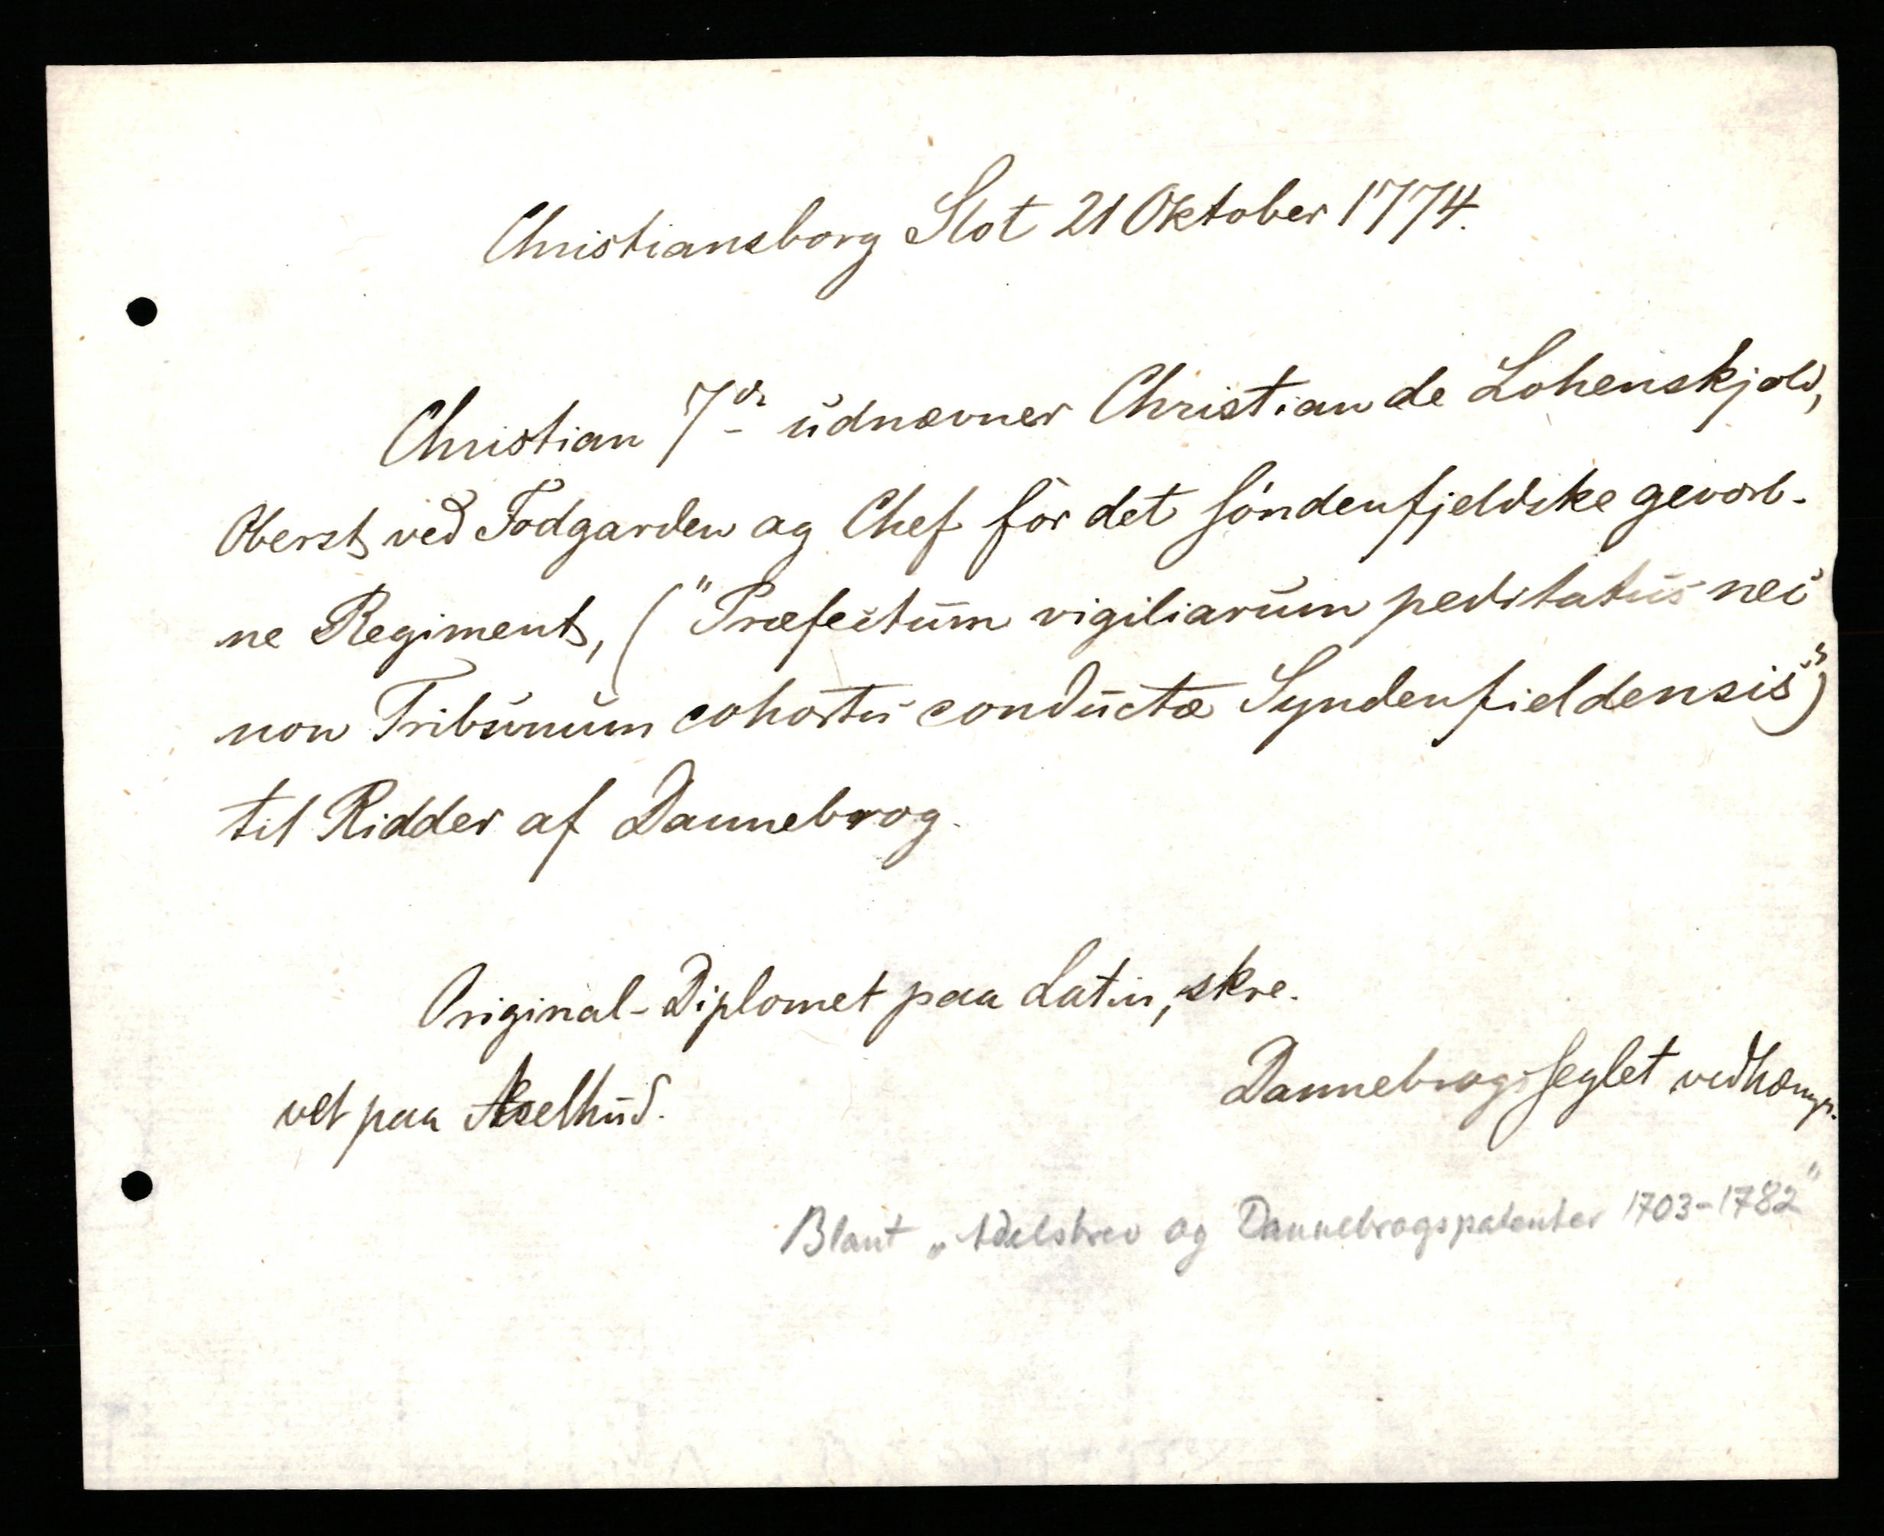 Christiansborg Slot 21 Oktober 1774.
Christian 7de udnævner Christian de Lohenskjold,
Oberst ved Fodgarden og Chef for det søndenfjeldske gevorb-
ne Regiment, ("Præfectum vigiliarum peditatus nec
non Tribunum cohortis conductæ Syndenfieldensis")
til Ridder af Dannebrog.
Original-Diplomet paa Latin, skre-
vet paa Æselhud.
Dannebrogsseglet vedhænger.
Blant „Adelsbrev og Dannebrogspatenter 1703-1782"